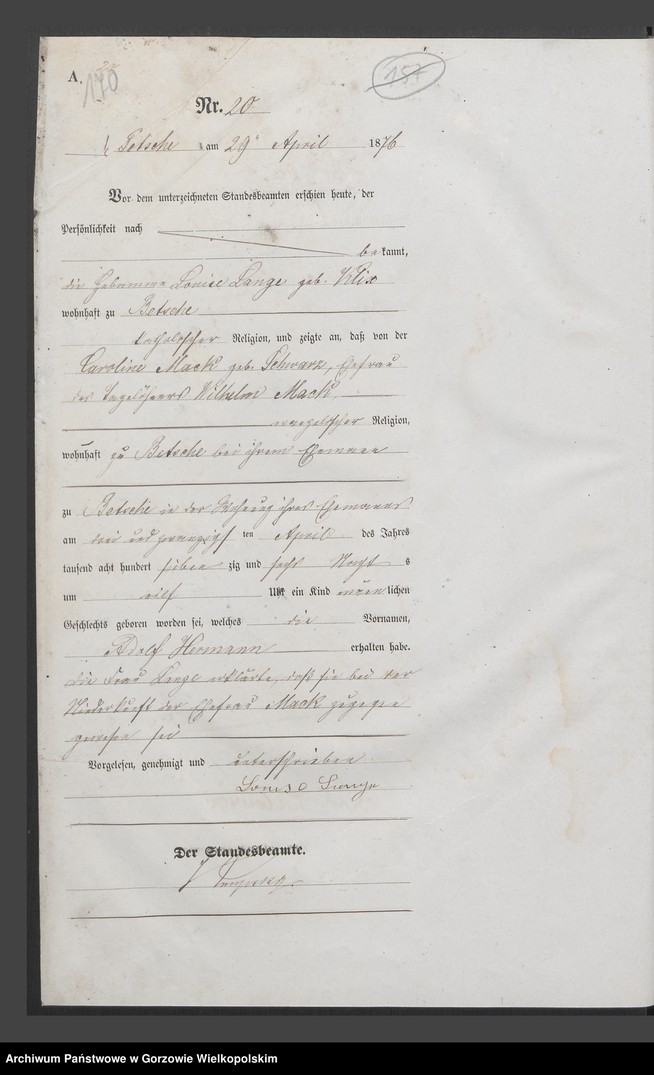 A.
170
157
Nr. 20
Betsche am 29 April 1876
Vor dem unterzeichneten Standesbeamten erschien heute, der
Persönlichkeit nach
bekannt,
die Hebamme Louise Lange geb. Klix
wohnhaft zu Betsche
katholischer Religion, und zeigte an, daß von der
Caroline Mack geb. Schwarz, Ehefrau
des Tagelöhners Wilhelm Mack,
evangelischer Religion,
wohnhaft zu Betsche bei ihrem Ehemanne
zu Betsche in der Wohnung ihres Ehemannes
am drei und zwanzigsten April des Jahres
tausend acht hundert siebenzig und sechs Nachts
um eilf Uhr ein Kind männlichen
Geschlechts geboren worden sei, welches die Vornamen,
Adolf Hermann erhalten habe.
die Frau Lange erklärte, daß sie bei der
Niederkunft der Ehefrau Mack zugegen
gewesen sei
Vorgelesen, genehmigt und unterschrieben
Louise Lange
Der Standesbeamte.
Archiwum Państwowe w Gorzowie Wielkopolskim